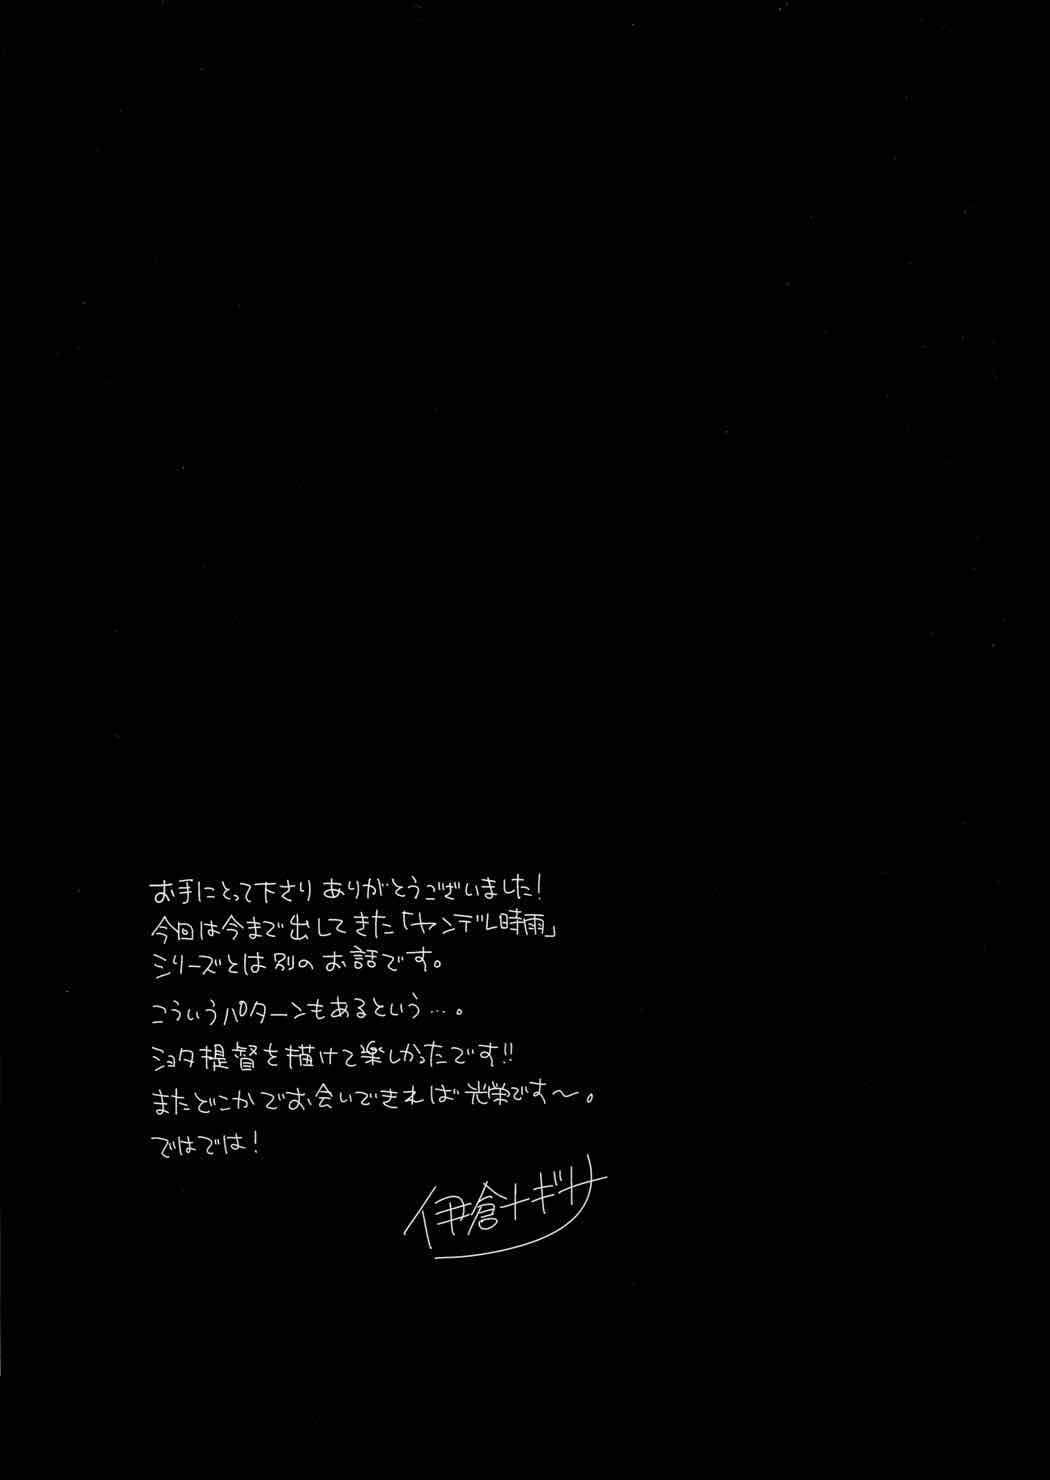 お手にとって下さり ありがとうございました!
今回は今まで出してきた「ヤンデレ時雨」
シリーズとは別のお話です。
こういうパターンもあるという…。
ショタ提督を描けて楽しかったです!!
またどこかでお会いできれば光栄です〜。
ではでは!
伊倉ナギサ